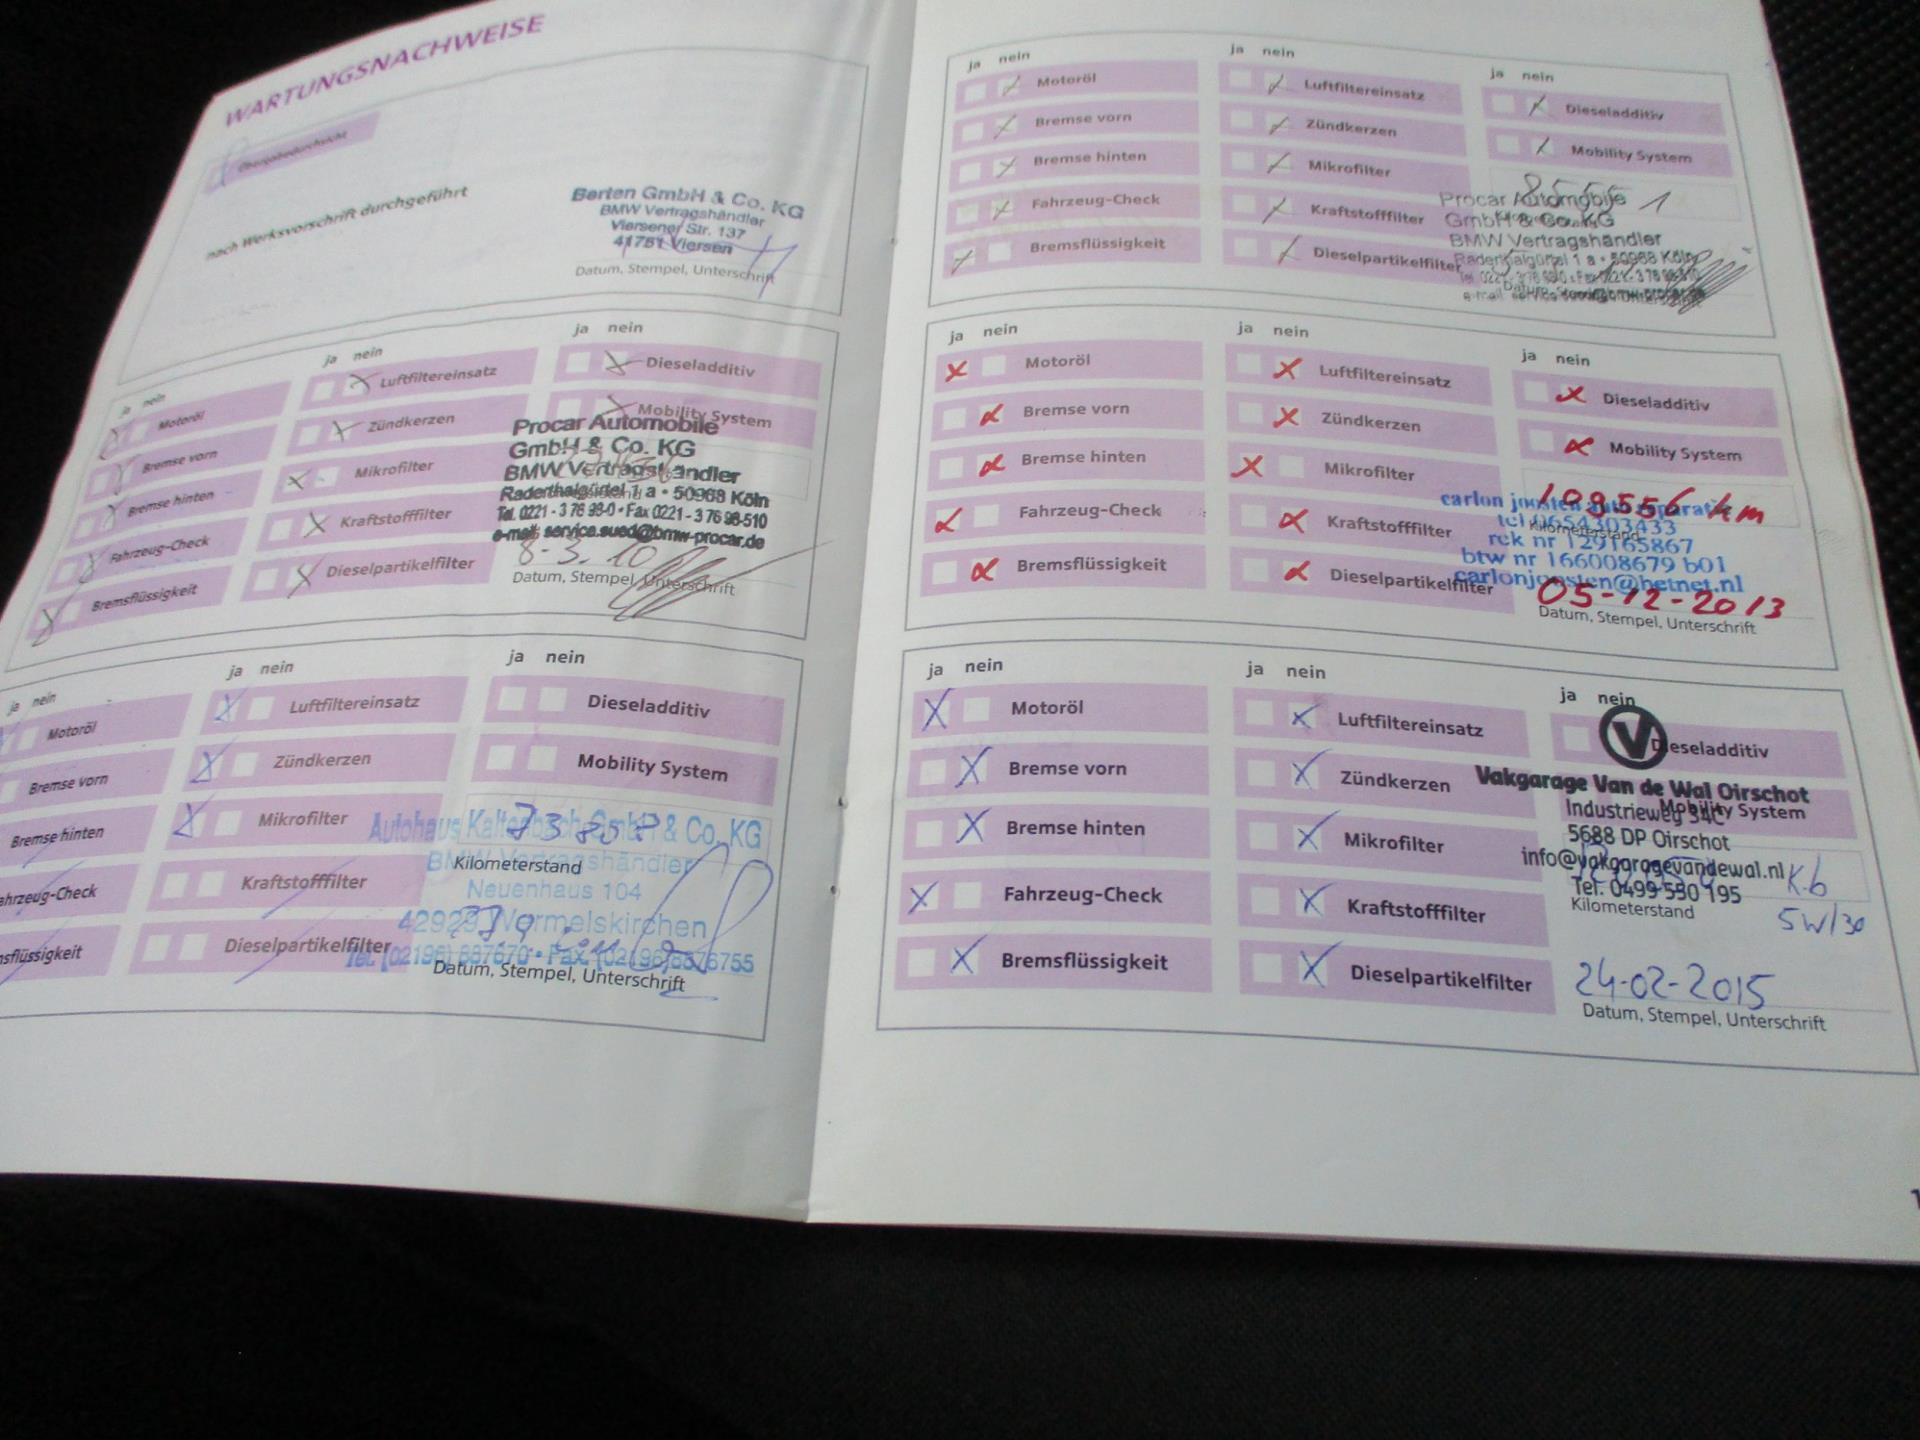 WARTUNGSNACHWEISE
Übergabedurchsicht
nach Werksvorschrift durchgeführt
Berten GmbH & Co. KG
BMW Vertragshändler
Viersener Str. 137
41751 Viersen
Datum, Stempel, Unterschrift
ja nein
ja nein
ja nein
Motoröl
Luftfiltereinsatz
Dieseladditiv
Bremse vorn
Zündkerzen
Mobility System
Bremse hinten
Mikrofilter
Fahrzeug-Check
Kraftstofffilter
Bremsflüssigkeit
Dieselpartikelfilter
Procar Automobile
GmbH & Co. KG
BMW Vertragshändler
Raderthalgürtel 1 a • 50968 Köln
Tel. 0221 - 3 76 98-0 • Fax 0221 - 3 76 98-510
e-mail: service.sued@bmw-procar.de
8-3.10
Datum, Stempel, Unterschrift
ja nein
ja nein
ja nein
Motoröl
Luftfiltereinsatz
Dieseladditiv
Bremse vorn
Zündkerzen
Mobility System
Bremse hinten
Mikrofilter
Fahrzeug-Check
Kraftstofffilter
Bremsflüssigkeit
Dieselpartikelfilter
Autohaus Kaltenbach GmbH & Co. KG
Kilometerstand
BMW Vertragshändler
Neuenhaus 104
42929 Wermelskirchen
Tel. (02196) 887670 • Fax (02196) 8876755
Datum, Stempel, Unterschrift
ja nein
ja nein
ja nein
Motoröl
Luftfiltereinsatz
Dieseladditiv
Bremse vorn
Zündkerzen
Mobility System
Bremse hinten
Mikrofilter
Fahrzeug-Check
Kraftstofffilter
Bremsflüssigkeit
Dieselpartikelfilter
Procar Automobile
GmbH & Co. KG
BMW Vertragshändler
Raderthalgürtel 1 a • 50968 Köln
Tel. 0221 - 3 76 98-0 • Fax 0221 - 3 76 98-510
ja nein
ja nein
ja nein
Motoröl
Luftfiltereinsatz
Dieseladditiv
Bremse vorn
Zündkerzen
Mobility System
Bremse hinten
Mikrofilter
Fahrzeug-Check
Kraftstofffilter
Bremsflüssigkeit
Dieselpartikelfilter
109556 km
carlon joosten auto reparatie
tel 0654303433
Kilometerstand
rek nr 129165867
btw nr 166008679 b01
carlonjoosten@hetnet.nl
05-12-2013
Datum, Stempel, Unterschrift
ja nein
ja nein
ja nein
Motoröl
Luftfiltereinsatz
Dieseladditiv
Bremse vorn
Zündkerzen
Mobility System
Bremse hinten
Mikrofilter
Fahrzeug-Check
Kraftstofffilter
Bremsflüssigkeit
Dieselpartikelfilter
V
Vakgarage Van de Wal Oirschot
Industrieweg 34C
5688 DP Oirschot
info@vakgaragevandewal.nl
Tel. 0499 550 195
Kilometerstand
5W/30
24-02-2015
Datum, Stempel, Unterschrift